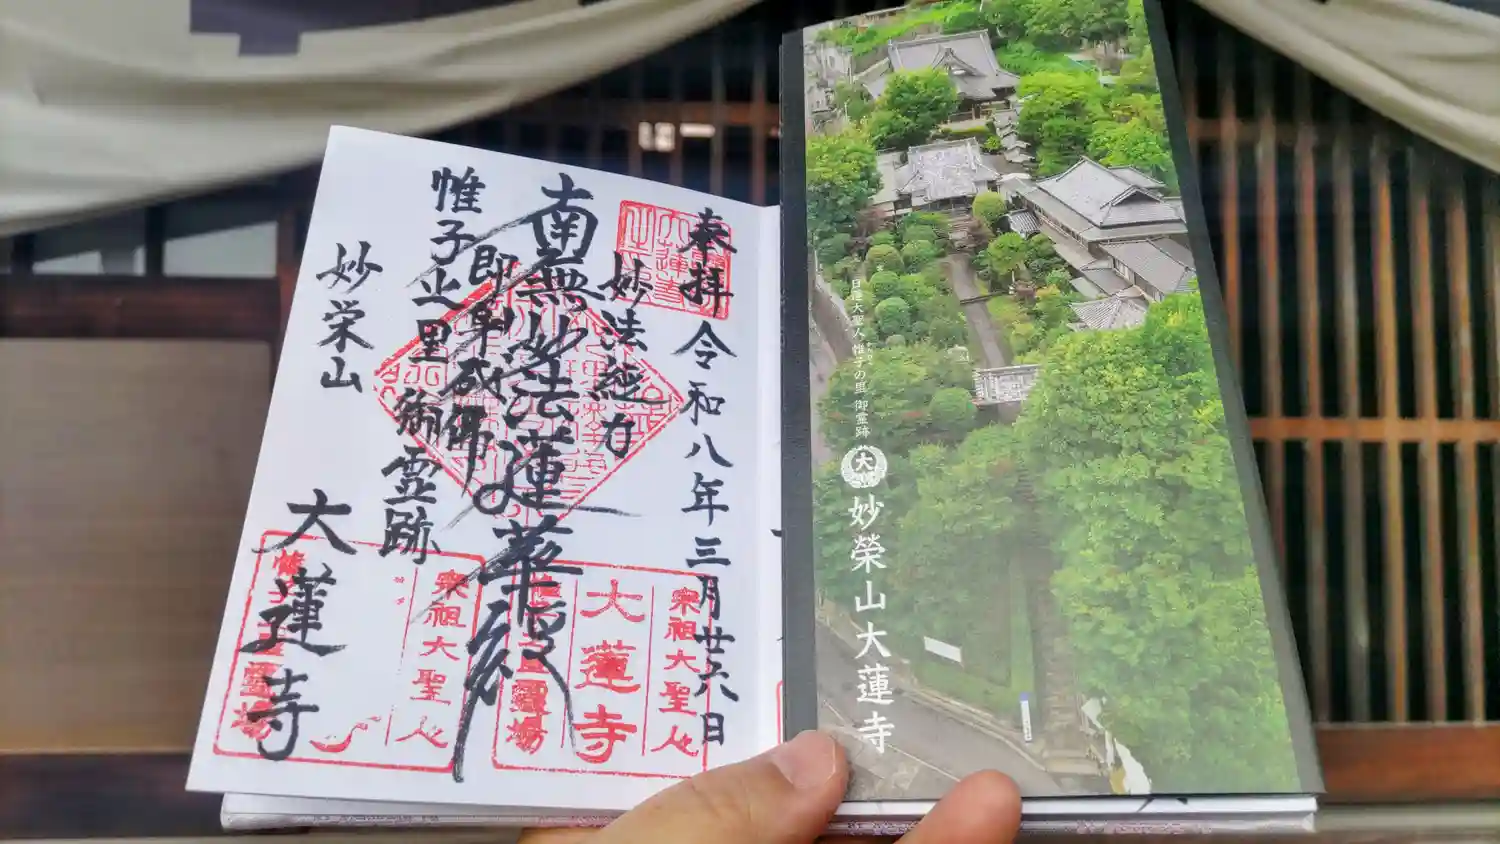 奉拝 令和八年三月廿六日
妙法経力
南無妙法蓮華経
即身成仏
惟子之里 御霊跡
妙栄山
大蓮寺
宗祖大聖人
大蓮寺
宗祖大聖人
霊場
日蓮大聖人 帷子の里 御霊跡
大
妙榮山大蓮寺